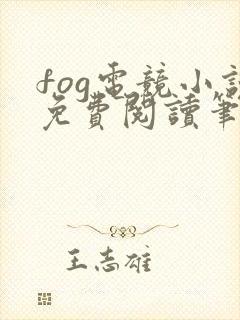 fog電競小說
免費閱讀筆
王志雄